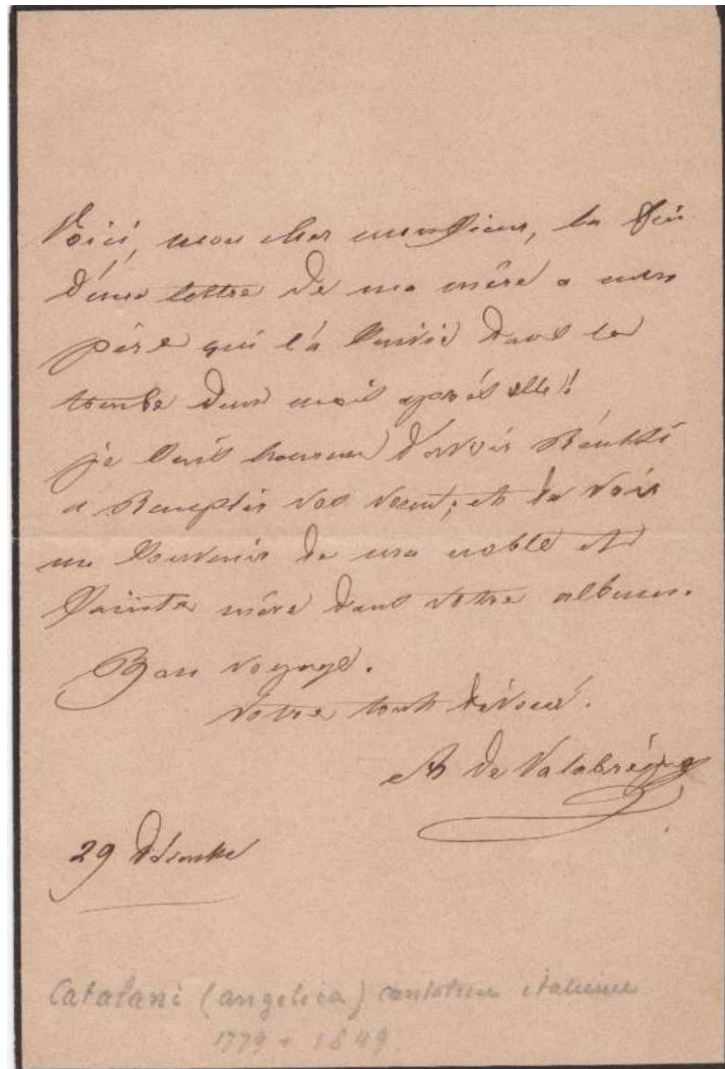 Voici, mon cher monsieur, la fin
d'une lettre de ma mère a mon
père qui l'a suivie dans la
tombe deux mois après elle!!
je suis heureux d'avoir Réussi
a Remplir vos voeux, et de voir
un souvenir de ma noble et
sainte mère dans votre album.
Bon voyage.
votre tout dévoué.
de Valabrègue
29 décembre
Catalani (angelica) cantatrice italienne
1779 + 1849.